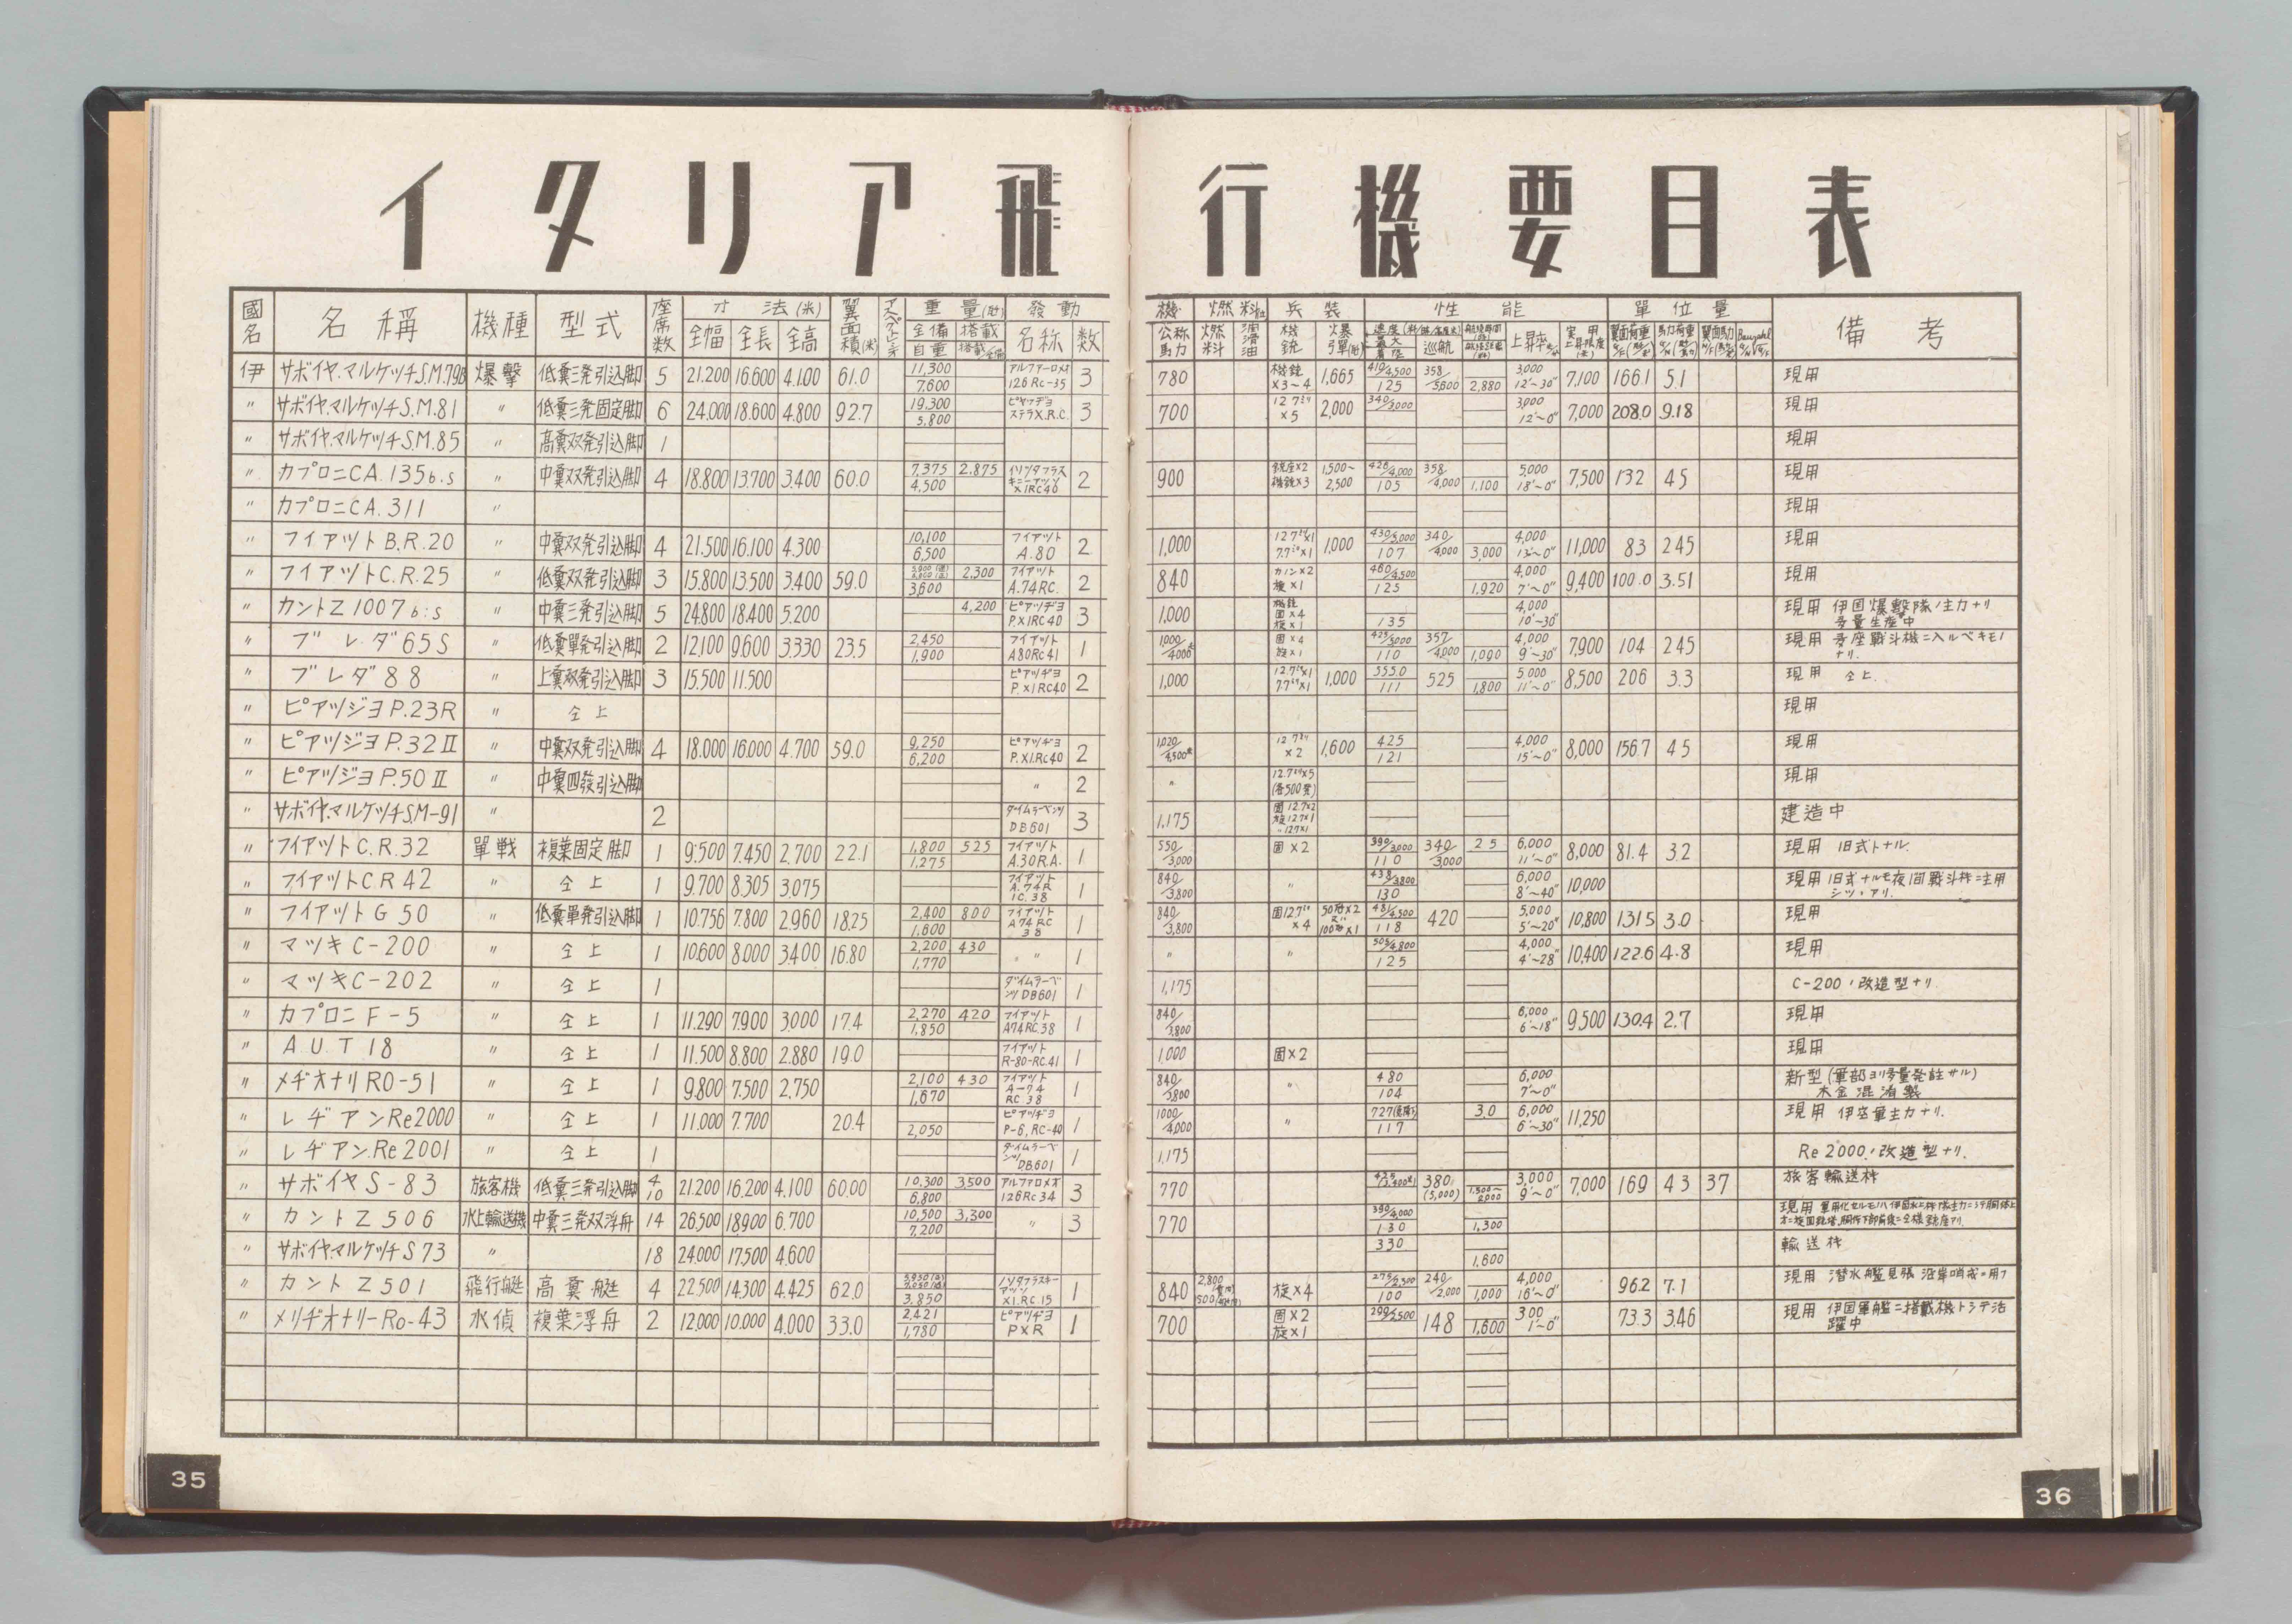 イタリア飛行機要目表
國名 名稱 機種 型式 座席数 寸法(米) 全幅 全長 全高 翼面積(米) 重量 全備 自重 搭載 發動 名称 数
機 公称馬力 燃料 燃料 潤滑油 兵裝 機銃 爆弾 性能 速度 最大 巡航 上昇率 單位量 翼面荷重 馬力荷重 翼面馬力 備考
伊 サボイヤ.マルケッチS.M.79B 爆擊 低翼三発引込脚 5 21.200 16.600 4.100 61.0 11,300 7,600 アルファーロメオ 126 Rc-35 3 780 機銃×3~4 1,665 410/4,500 125 358/5,600 2,880 3,000 12'~30" 7,100 166.1 5.1 現用
〃 サボイヤ.マルケッチS.M.81 〃 低翼三発固定脚 6 24.000 18.600 4.800 92.7 19,300 5,800 3 700 12.7ミリ×5 2,000 340/3,000 3,000 12'~0" 7,000 208.0 9.18 現用
〃 サボイヤ.マルケッチS.M.85 〃 高翼双発引込脚 1 現用
〃 カプロニCA.135b.s 〃 中翼双発引込脚 4 18.800 13.700 3.400 60.0 7,375 2,875 4,500 X1RC40 2 900 銃座×2 機銃×3 1,500~2,500 428/4,000 105 358/4,000 1,100 5,000 18'~0" 7,500 132 45 現用
〃 カプロニCA.311 〃 現用
〃 フイアツトB.R.20 〃 中翼双発引込脚 4 21.500 16.100 4.300 10,100 6,500 フイアツト A.80 2 1,000 12.7ミリ×1 7.7ミリ×1 1,000 430/5,000 107 340/4,000 3,000 4,000 13'~0" 11,000 83 245 現用
〃 フイアツトC.R.25 〃 低翼双発引込脚 3 15.800 13.500 3.400 59.0 2,300 3,600 フイアツト A.74RC. 2 840 カノン×2 旋×1 460/4,500 125 1,920 4,000 7'~0" 9,400 100.0 3.51 現用
〃 カントZ1007b:s 〃 中翼三発引込脚 5 24.800 18.400 5.200 4,200 ピアツヂヨ P.X1RC40 3 1,000 機銃 固×4 旋×1 135 4,000 10'~30" 現用 伊国爆擊隊ノ主力ナリ 多量生産中
〃 ブレダ65S 〃 低翼單発引込脚 2 12.100 9.600 3.330 23.5 2,450 1,900 フイアツト A80RC41 1 1,000/4,000米 固×4 旋×1 425/5,000 110 357/4,000 1,090 4,000 9'~30" 7,900 104 245 現用 多座戦斗機ニ入ルベキモノナリ.
〃 ブレダ88 〃 上翼双発引込脚 3 15.500 11.500 ピアツヂヨ P.X1RC40 2 1,000 12.7ミリ×1 7.7ミリ×1 1,000 555.0 111 525 1,800 5,000 11'~0" 8,500 206 3.3 現用 仝上.
〃 ピアツジヨP.23R 〃 仝上 現用
〃 ピアツジヨP.32Ⅱ 〃 中翼双発引込脚 4 18.000 16.000 4.700 59.0 9,250 6,200 ピアツヂヨ P.X1.RC40 2 1,020/4,500米 12.7ミリ×2 1,600 425 121 4,000 15'~0" 8,000 156.7 45 現用
〃 ピアツジヨP.50Ⅱ 〃 中翼四發引込脚 〃 2 〃 12.7ミリ×5 (各500発) 現用
〃 サボイヤ.マルケッチS.M-91 〃 2 ダイムラーベンツ DB601 3 1,175 固12.7×2 旋12.7×1 〃12.7×1 建造中
〃 フイアツトC.R.32 單戦 複葉固定脚 1 9.500 7.450 2.700 22.1 1,800 525 1,275 フイアツト A.30R.A. 1 550/3,000 固×2 390/3,000 110 340/3,000 25 6,000 11'~0" 8,000 81.4 3.2 現用 旧式トナル.
〃 フイアツトCR42 〃 仝上 1 9.700 8.305 3.075 フイアツト A.74R 1C.38 1 840/3,800 〃 438/3,800 130 6,000 8'~40" 10,000 現用 旧式ナルモ夜間戦斗機ニ主用シツヽアリ.
〃 フイアツトG50 〃 低翼單発引込脚 1 10.756 7.800 2.960 18.25 2,400 800 1,600 フイアツト A74RC 38 1 840/3,800 固12.7ミリ×4 481/4,500 118 420 5,000 5'~20" 10,800 131.5 3.0 現用
〃 マツキC-200 〃 仝上 1 10.600 8.000 3.400 16.80 2,200 430 1,770 〃 〃 1 〃 〃 505/4,800 125 4,000 4'~28" 10,400 122.6 4.8 現用
〃 マツキC-202 〃 仝上 1 ダイムラーベンツDB601 1 1,175 C-200ノ改造型ナリ
〃 カプロニF-5 〃 仝上 1 11.290 7.900 3.000 17.4 2,270 420 1,850 フイアツト A74RC.38 1 840/3,800 6,000 6'~18" 9,500 130.4 2.7 現用
〃 A.U.T18 〃 仝上 1 11.500 8.800 2.880 19.0 フイアツト R-80-RC.41 1 1,000 固×2 現用
〃 メヂオナリRO-51 〃 仝上 1 9.800 7.500 2.750 2,100 430 1,670 フイアツト A-74 RC38 1 840/3,800 〃 480 104 6,000 7'~0" 新型(軍部ヨリ多量発註サル) 木金混淆製
〃 レヂアンRe2000 〃 仝上 1 11.000 7.700 20.4 2,050 ピアツヂヨ P-6,RC-40 1 1000/4,000 〃 117 3.0 6,000 6'~30" 11,250 現用 伊空軍主力ナリ.
〃 レヂアン.Re2001 〃 仝上 1 ダイムラーベンツDB.601 1 1,175 Re2000ノ改造型ナリ.
〃 サボイヤS-83 旅客機 低翼三発引込脚 4/10 21.200 16.200 4.100 60.00 10,300 3,500 6,800 アルファロメオ 126Rc34 3 770 380(5,000) 1,500~2,000 3,000 9'~0" 7,000 169 43 37 旅客輸送機
〃 カントZ506 水上輸送機 中翼三発双浮舟 14 26.500 18.900 6.700 10,500 3,300 7,200 〃 3 770 390/4,000 130 1,300
〃 サボイヤ.マルケッチS73 〃 18 24.000 17.500 4.600 330 1,600 輸送機
〃 カントZ501 飛行艇 高翼艇 4 22.500 14.300 4.425 62.0 3,850 X1.RC.15 1 840 旋×4 275/2,500 100 240/2,000 1,000 4,000 16'~0" 96.2 7.1 現用 潜水艦見張 沿岸哨戒ニ用フ
〃 メリヂオナリーRo-43 水偵 複葉浮舟 2 12.000 10.000 4.000 33.0 2,421 1,780 ピアツヂヨ PXR 1 700 固×2 旋×1 299/2,500 148 1,600 300 1'~0" 73.3 3.46 現用 伊国軍艦ニ搭載機トシテ活躍中
35
36